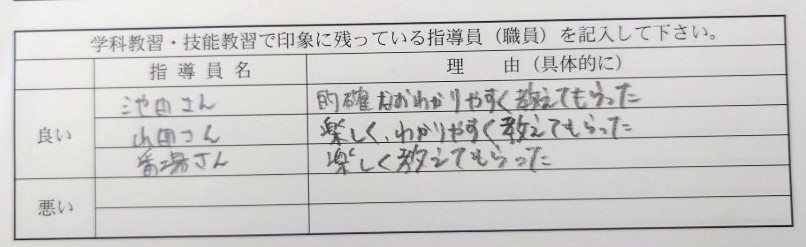 学科教習・技能教習で印象に残っている指導員（職員）を記入して下さい。
指導員名 理由（具体的に）
良い 池田さん 的確なおわかりやすく教えてもらった
山田さん 楽しく、わかりやすく教えてもらった
番場さん 楽しく教えてもらった
悪い